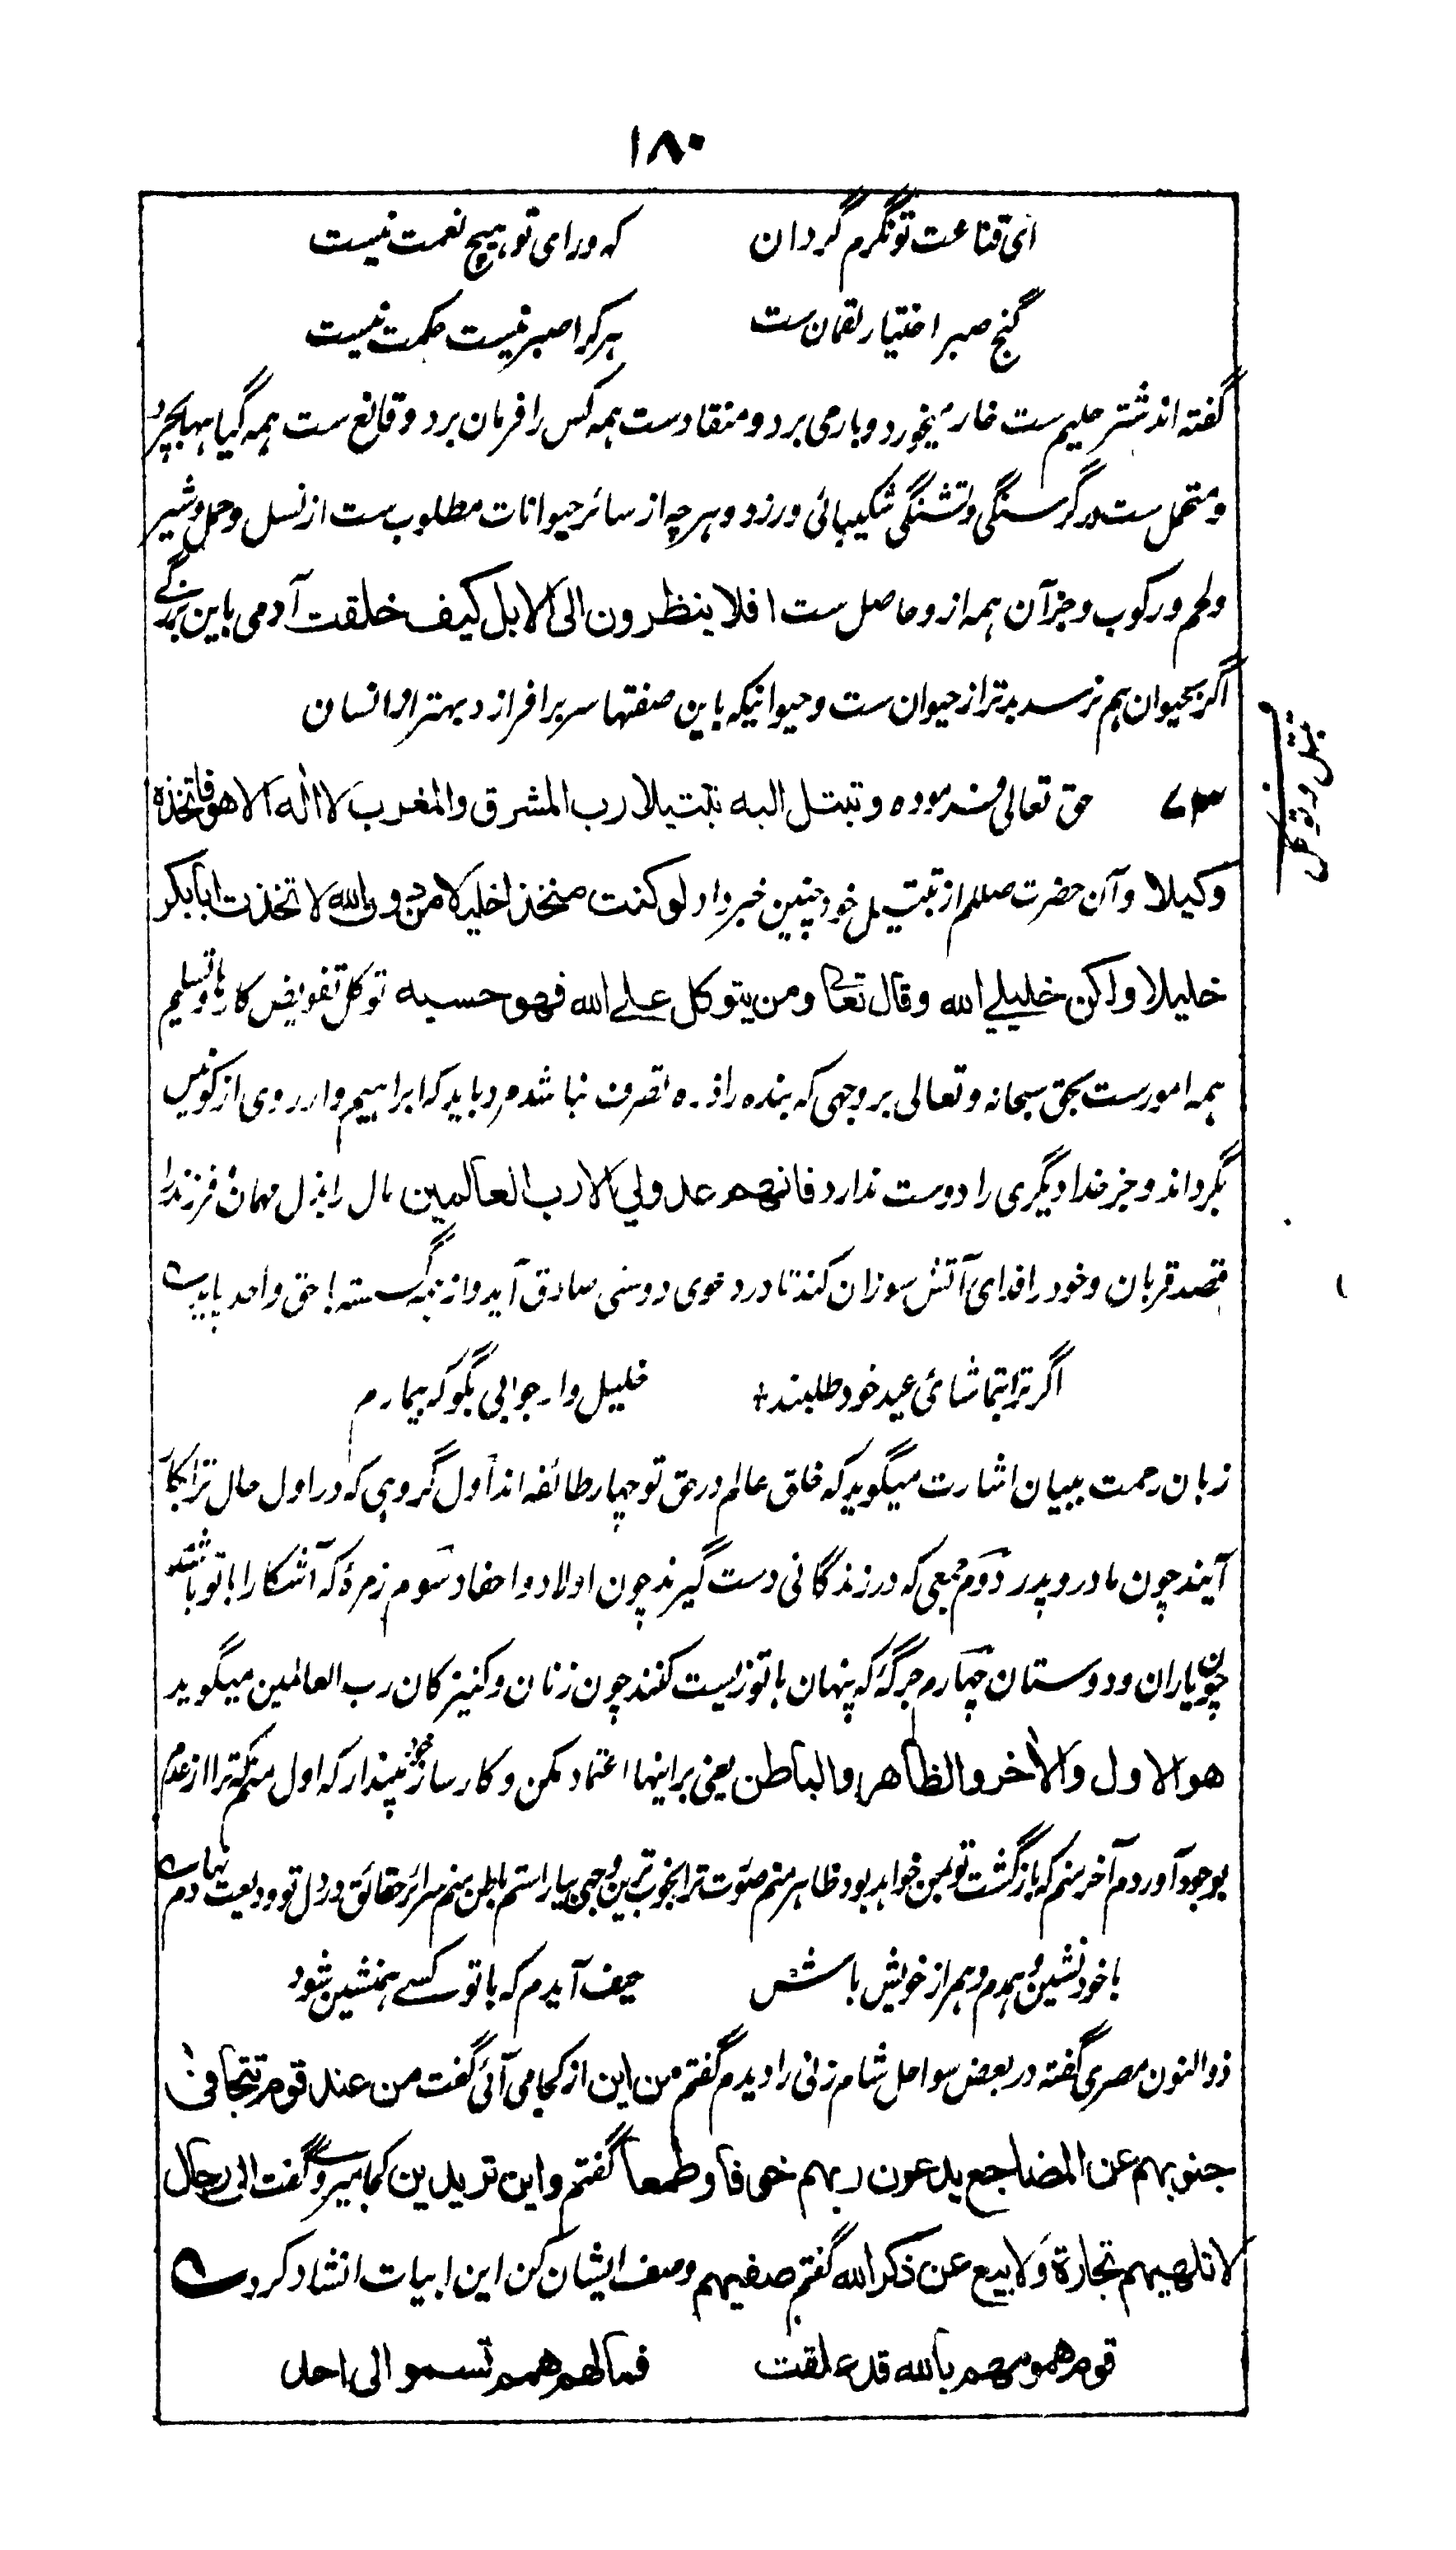 ۱۸۰
ای قناعت تونگرم گردان که ورای تو هیچ نعمت نیست
گنج صبر اختیار لقمان ست هر کرا صبر نیست حکمت نیست
گفته اند شتر حلیم ست خار میخورد و بار می برد و منقاد ست همه کس را فرمان برد و قانع ست همه گیاهها بچرد
و متحمل ست بر گرسنگی و تشنگی شکیبائی ورزد و هر چه از سائر حیوانات مطلوب ست از نسل و حمل و شیر
و لحم و رکوب و جز آن همه از و حاصل ست افلا ینظرون الی الابل کیف خلقت آدمی باین بزرگے
اگر بحیوان هم نرسد بدتر از حیوان ست و حیوانیکه باین صفتها سر بر افرازد بهتر از انسان
۷۳ حق تعالی فرموده و تبتل الیه تبتیلا رب المشرق والمغرب لا اله الا هو فاتخذه
تبتل و توکل
وکیلا و آن حضرت صلعم از تبتیل خود چنین خبر داد لو کنت متخذا خلیلا من دون الله لاتخذت ابابکر
خلیلا ولکن خلیلی الله وقال تعالی ومن یتوکل علے الله فهو حسبه توکل تفویض کارها و تسلیم
همه امور ست بحق سبحانه و تعالی بر وجهی که بنده را ذره تصرف نباشد مرد باید که ابراهیم وار روی از کونین
بگرداند و جز خدا دیگری را دوست ندارد فانهم عدولی الا رب العالمین مال را بذل مهمان فرزند را
قصد قربان و خود را فدای آتش سوزان کند تا در دعوی دوستی صادق آید و از همه گسسته با حق واحد پاید
اگر ترا بتماشای عید خود طلبند خلیل وار جوابی بگو که بیمارم
زبان رحمت ببیان اشارت میگوید که خلق عالم در حق تو چهار طائفه اند اول گروهی که در اول حال ترا بکار
آیند چون مادر و پدر دوم جمعی که در زندگانی دست گیرند چون اولاد و احفاد سوم زمرۀ که آشکارا با تو باشند
چون یاران و دوستان چهارم جرگۀ که پنهان با تو زیست کنند چون زنان و کنیزکان رب العالمین میگوید
هو الاول والاخر والظاهر والباطن یعنی بر اینها اعتماد مکن و کارساز خود مپندار که اول منم که ترا از عدم
بوجود آوردم آخر منم که بازگشت تو بمن خواهد بود ظاهر منم صورت ترا بخوب ترین وجهی بیاراستم باطن منم سرائر حقائق در دل تو ودیعت نهادم
با خود نشین و همدم و همراز خویش باش حیف آیدم که با تو کسے همنشین شود
ذوالنون مصری گفته در بعض سواحل شام زنی را دیدم گفتم من این از کجا می آئی گفت من عند قوم تتجافی
جنوبهم عن المضاجع یدعون ربهم خوفا و طمعا گفتم و این تریدین کجا میروی گفت الی رجال
لا تلهیهم تجارة ولا بیع عن ذکر الله گفتم صفیهم وصف ایشان کن این ابیات انشاد کرد
قوم همومهم بالله قد علقت فما لهم همم تسمو الی احد